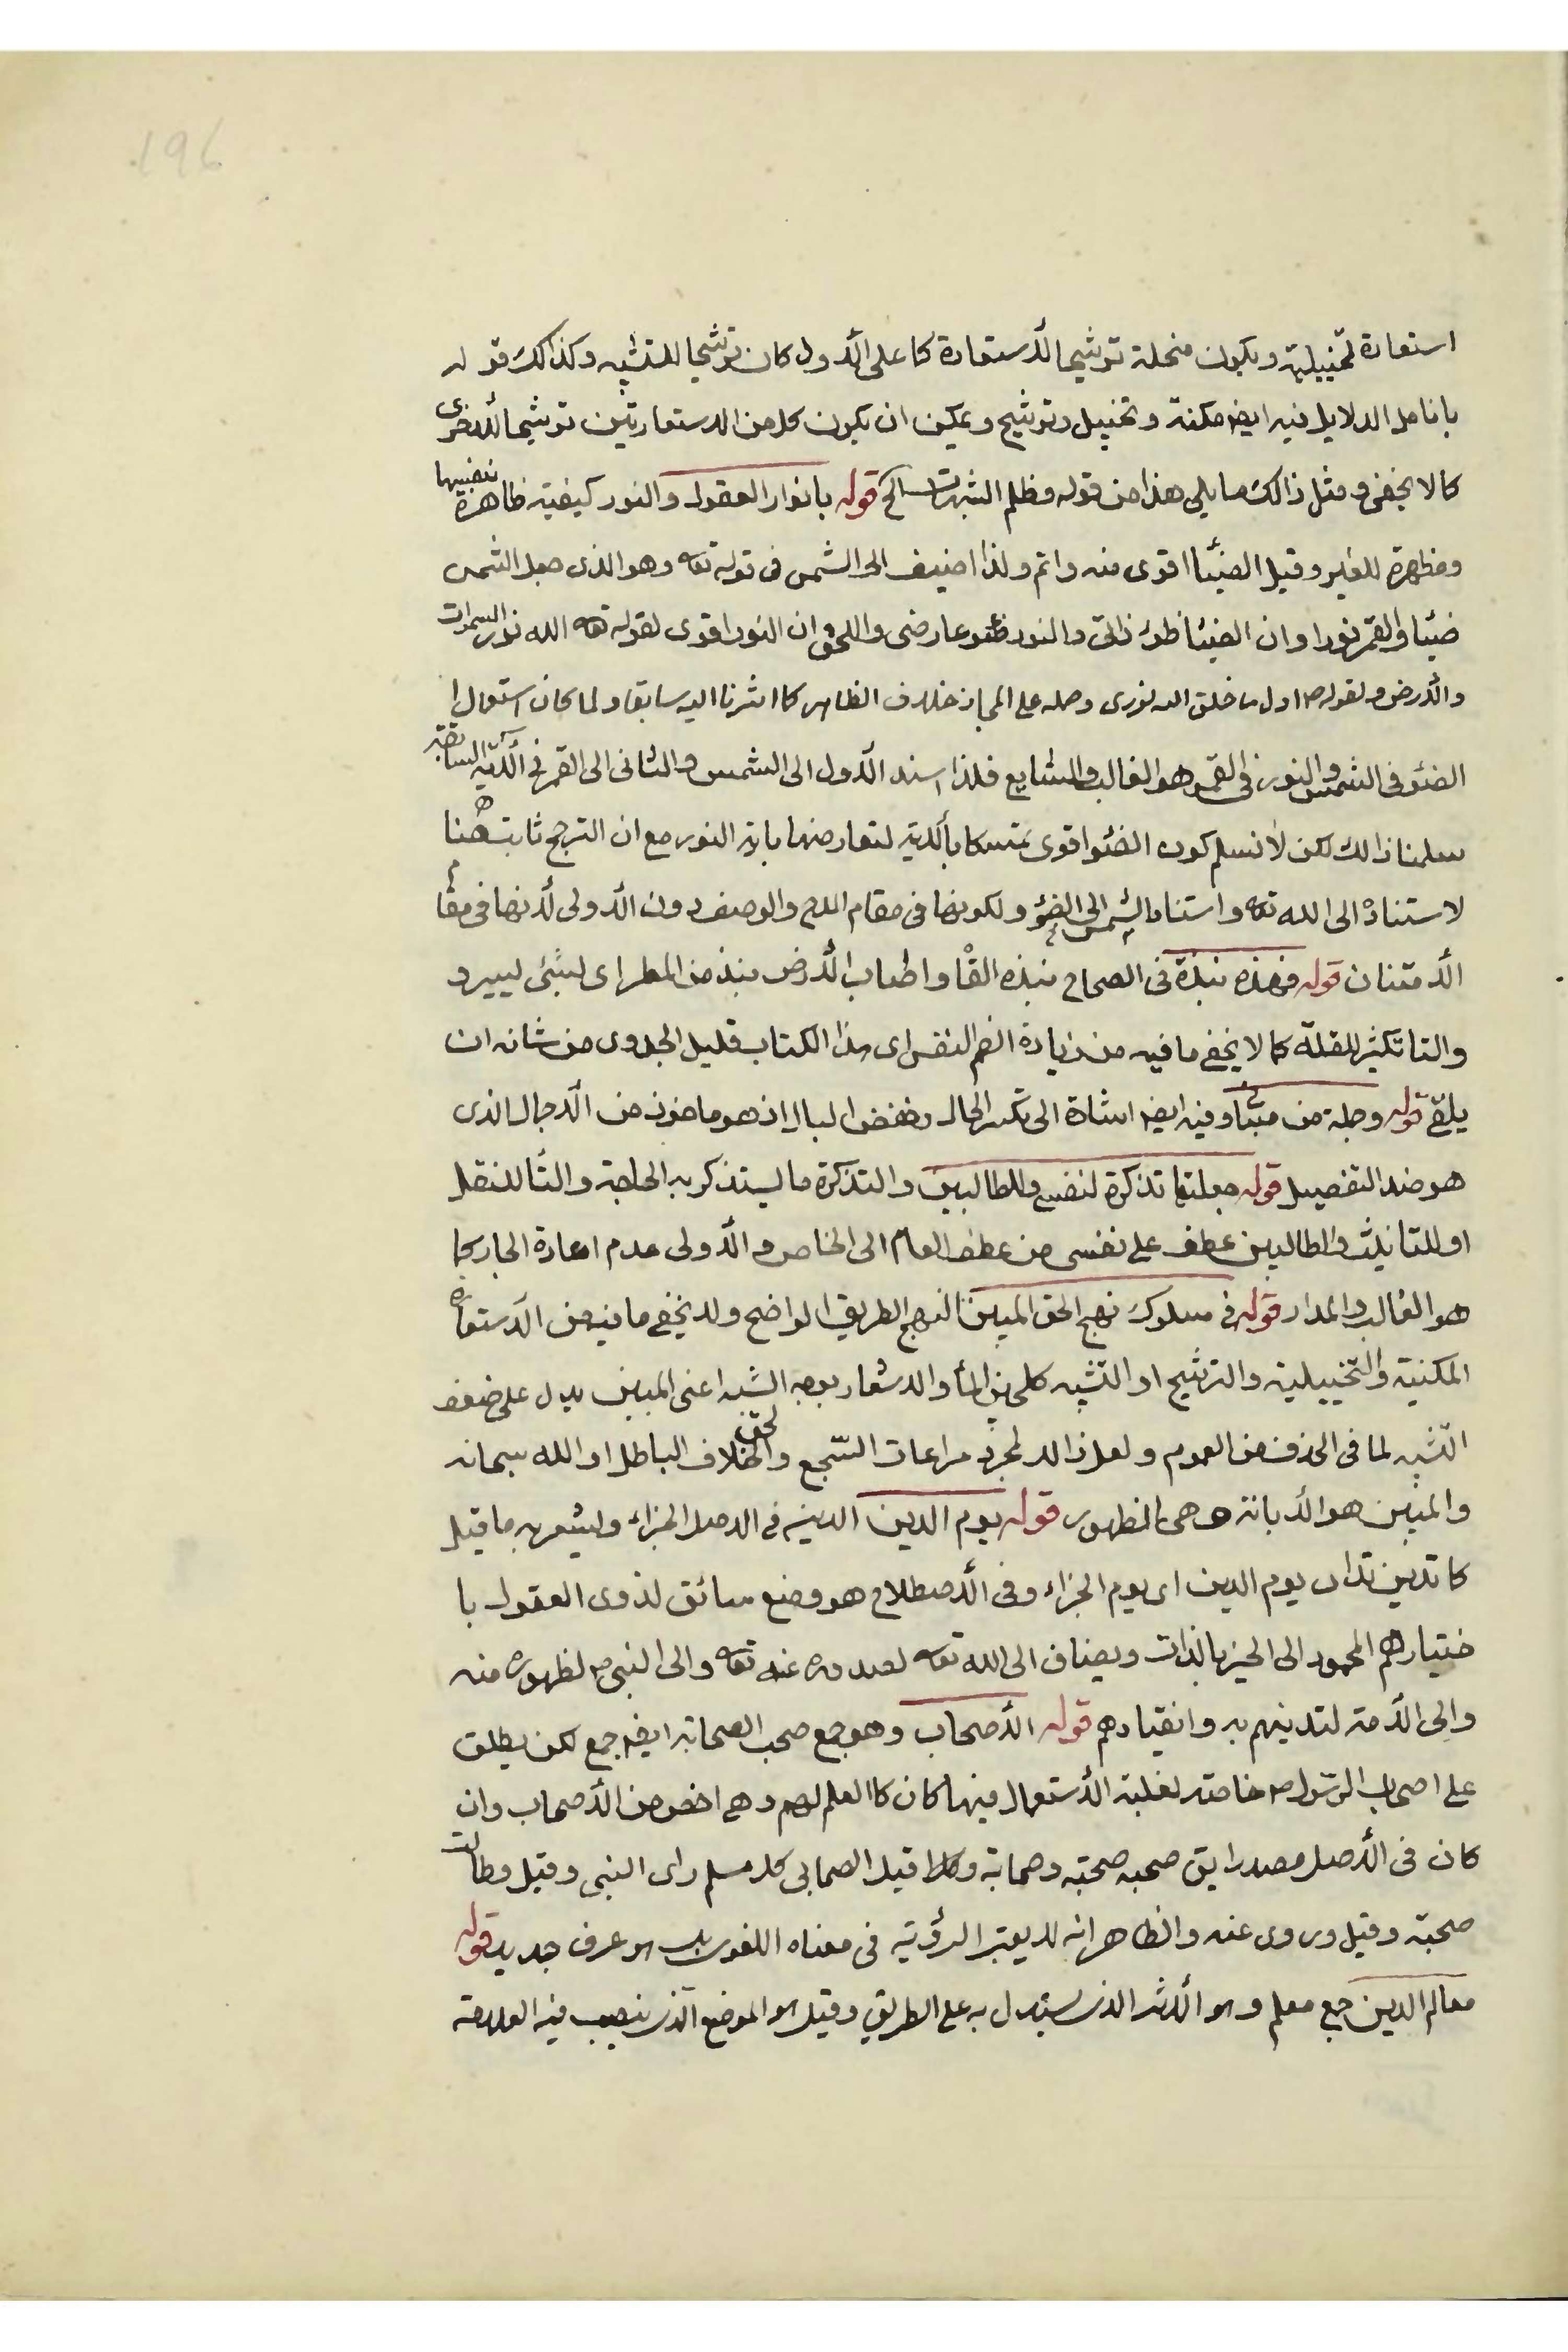 196
استعارة تخييلية ويكون منحلة ترشيحا للاستعارة كما على الأول كان ترشيحا للتشبيه وكذالك قوله
بانامل الدلايل فيه ايضا مكنية وتخييل وترشيح ويمكن ان يكون كل من الاستعارتين ترشيحا للاخرى
كما لا يخفى ومثل ذالك ما يلي هذا من قوله وظلم الشبهات الخ قوله بانوار العقول والنور كيفية ظاهرة بنفسها
ومظهرة للغير وقيل الضيئا اقوى منه واتم ولذا اضيف الى الشمس في قوله تعه وهو الذى جعل الشمس
ضيئا والقمر نورا وان الضيئا ضوء ذاتى والنور ضوء عارضى والحق ان النور اقوى لقوله تعه الله نور السموات
والأرض ولقوله ص اول ما خلق الله نورى وحمله على المجاز خلاف الظاهر كما اشرنا اليه سابقا ولما كان استعمال
الضئو في الشمس والنور في القمر هو الغالب والشايع فلذا اسند الأول الى الشمس والثانى الى القمر في الآية السابقة
سلمنا ذالك لكن لا نسلم كون الضئو اقوى متمسكا بالآية لتعارضها باية النور مع ان الترجح ثابت هنا
لاستناده الى الله تعه واستناد الشمس الى الضوء ولكونها في مقام المدح والوصف دون الأولى لأنها في مقام
الأمتنان قوله فهذه نبذة في الصحاح نبذه القا واطاب الأرض نبذ من المطر اى لشئ يسير و
والتا تكثير للقلة كما لا يخفى ما فيه من زيادة الضم النفس اى هذا الكتاب قليل الجدوى من شانه ان
يلقى قوله وجملة من وفيه ايضا اشارة الى تكسر الحال وخفض البال اذ هو ماخوذ من الأجمال الذى
هو ضد التفصيل قوله جعلتها تذكرة لنفسى وللطالبين والتذكرة ما يستذكر به الحاجة والتا للنقل
او للتانيث والطالبين عطف على نفسى من عطف العام الى الخاص والأولى عدم اعادة الجار كما
هو الغالب والمدار قوله في سلوك نهج الحق المبين النهج الطريق الواضح ولا يخفى ما فيه من الأستعارة
المكنية والتخييلية والترشيح او التشبيه كلجين الماء والاشعار بوجه الشبه اعنى المبين يدل على ضعف
التشبيه لما في الحذف من العموم ولعل ذالك لمجرد مراعات السجع والحق خلاف الباطل او الله سبحانه
والمبين هو الأبانة وهى الظهور قوله يوم الدين الدين في الاصل الجزاء وليشعر به ما قيل
كما تدين تدان يوم الدين اى يوم الجزاء وفي الأصطلاح هو وضع سائق لذوى العقول با
ختيارهم المحمود الى الخير بالذات ويضاف الى الله تعه لصدوره عنه تعه والى النبى ص لظهوره منه
والى الأمة لتدينهم به وانقيادهم قوله الأصحاب وهو جمع صحب الصحابة ايضا جمع لكن يطلق
على اصحاب الرسول ص خاصة لغلبة الأستعمال فيها كان كالعلم لهم وهى اخص من الأصحاب وان
كان في الأصل مصدرا يق صحبه صحبة وصحابة قيل الصحابى كل مسلم راى النبى وقيل وطالت
صحبته وقيل وروى عنه والظاهر انه لا يعتبر الرؤية في معناه اللغوى بل هو عرف جديد قوله
معالم الدين جمع معلم وهو الأثر الذى يستدل به على الطريق وقيل هو الموضع الذى ينصب فيه العلامة